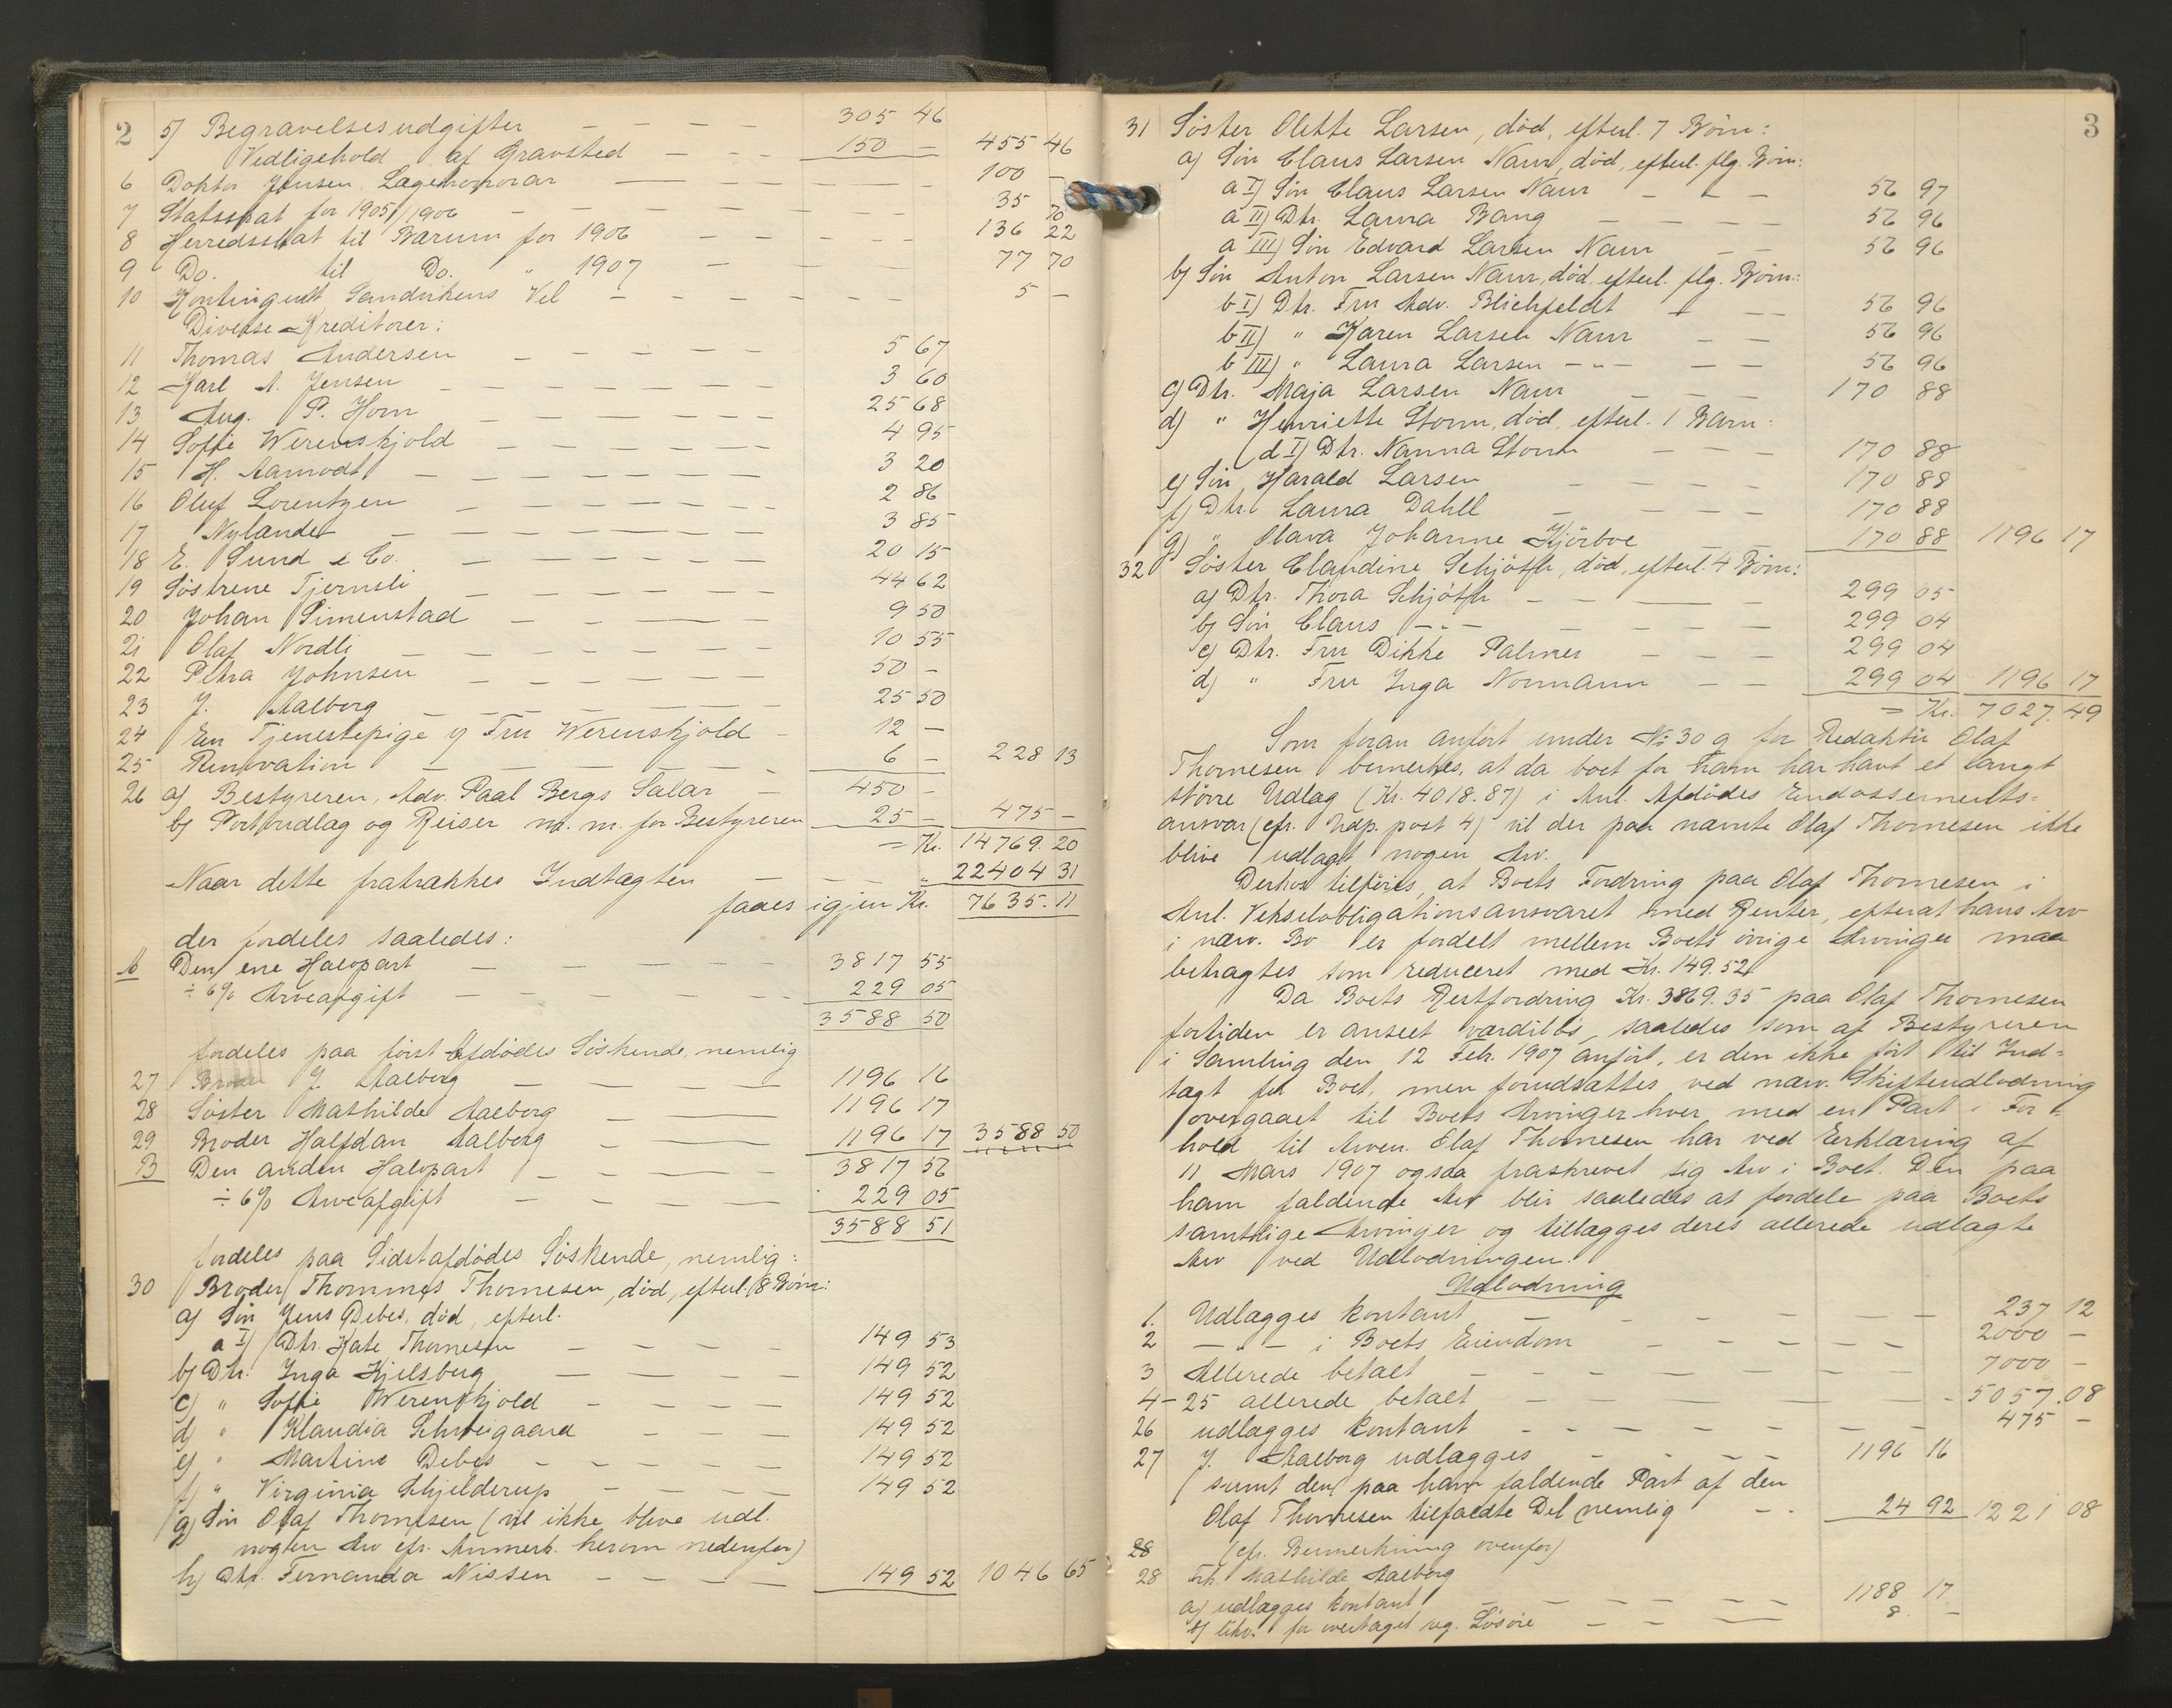 2 5) Begravelsesudgifter 305 46
Vedligehold af Gravsted 150 – 455 46
6 Doktor Jensen Lægehonorar 100 –
7 Statsskat for 1905/1906 35 70
8 Herredsskat til Bærum for 1906 136 22
9 Do. til Do. " 1907 77 70
10 Kontingent Sandvikens Vel 5 –
Diverse Kreditorer:
11 Thomas Andersen 5 67
12 Karl A. Jensen 3 60
13 Aug. P. Horn 25 68
14 Sofie Werenskjold 4 95
15 H. Aamodt 3 20
16 Oluf Lorentzen 2 86
17 Nylander 3 85
18 E. Sund & Co. 20 15
19 Søstrene Tjernsli 44 62
20 Johan Simenstad 9 50
21 Olaf Nordli 10 55
22 Petra Johnsen 50 –
23 J. Aalborg 25 50
24 En Tjenestepige y Fru Werenskjold 12 –
25 Renovation 6 – 228 13
26 a) Bestyreren, Adv. Paal Bergs Salær 450 –
b) Portoudlæg og Reiser m. m. for Bestyreren 25 – 475 –
= Kr. 14769.20
Naar dette fratrækkes Indtægten " 22404 31
faaes igjen Kr. 7635.11
der fordeles saaledes:
A Den ene Halvpart 3817 55
÷ 6% Arveafgift 229 05
3588 50
fordeles paa først Afdødes Søskende, nemlig
27 Broder J. Aalborg 1196 16
28 Søster Mathilde Aalborg 1196 17
29 Broder Halfdan Aalborg 1196 17 3588 50
B Den anden Halvpart 3817 56
÷ 6% Arveafgift 229 05
3588 51
fordeles paa Sidstafdødes Søskende, nemlig:
30 Broder Thommes Thomesen, død, efterl. 8 Børn:
a) Søn Jens Debes, død, efterl.
a I) Dtr. Kate Thomesen 149 53
b) Dtr. Inga Kjelsberg 149 52
c) " Sofie Werenskjold 149 52
d) " Klaudia Schweigaard 149 52
e) " Martine Debes 149 52
f) " Virginia Schjelderup 149 52
g) Søn Olaf Thomesen (vil ikke blive udl.
nogen Arv cfr. Anmerk. herom nedenfor)
h) Dtr. Fernanda Nissen 149 52 1046 65
3
31 Søster Olette Larsen, død, efterl. 7 Børn:
a) Søn Claus Larsen Naur, død, efterl. flg. Børn:
a I) Søn Claus Larsen Naur 56 97
a II) Dtr. Laura Bang 56 96
a III) Søn Edvard Larsen Naur 56 96
b) Søn Anton Larsen Naur, død, efterl. flg. Børn:
b I) Dtr. Fru Adv. Blichfeldt 56 96
b II) " Karen Larsen Naur 56 96
b III) " Laura Larsen – " – 56 96
c) Dtr. Maja Larsen Naur 170 88
d) " Henriette Storm, død, efterl. 1 Barn:
(d I) Dtr. Nanna Storm 170 88
e) Søn Harald Larsen 170 88
f) Dtr. Laura Dahll 170 88
g) " Olava Johanne Kjørboe 170 88 1196 17
32 Søster Claudine Schjøtt, død, efterl. 4 Børn:
a) Dtr. Thora Schjøtt 299 05
b) Søn Claus – " – 299 04
c) Dtr. Fru Dikke Palmer 299 04
d) " Fru Inga Normann 299 04 1196 17
= Kr. 7027.49
Som foran anført under No 30 g for Redaktør Olaf
Thomesen bemerkes, at da boet for ham har havt et langt
større Udlæg (Kr. 4018.87) i Anl. Afdødes Endossements=
ansvar (cfr. Udg. post 4) vil der paa nævnte Olaf Thomesen ikke
blive udlagt nogen Arv.
Derhos tilføies, at Boets Fordring paa Olaf Thomesen i
Anl. Vekselobligationsansvaret med Renter, efterat hans Arv
i nærv. Bo er fordelt mellem Boets øvrige Arvinger maa
betragtes som reduceret med Kr. 149.52.
Da Boets Restfordring Kr. 3869.35 paa Olaf Thomesen
fortiden er anseet værdiløs, saaledes som af Bestyreren
i Samling den 12 Febr. 1907 anført, er den ikke ført til Ind=
tægt for Boet, men forudsættes ved nærv. Skifteudlodning
overgaaet til Boets Arvinger hver med en Part i For=
hold til Arven. Olaf Thomesen har ved Erklæring af
11 Mars 1907 ogsaa fraskrevet sig Arv i Boet. Den paa
ham faldende Arv blir saaledes at fordele paa Boets
samtlige Arvinger og tillægges deres allerede udlagte
Arv ved Udlodningen.
Udlodning
1. Udlægges kontant 237 12
2 – " – i Boets Eiendom 2000 –
3 Allerede betalt 7000 –
4–25 allerede betalt 5057.08
26 udlægges kontant 475 –
27 J. Aalborg udlægges 1196 16
samt den paa ham faldende Part af den
Olaf Thomesen tilfaldte Del nemlig 24 92 1221 08
28 (cfr. Bemerkning ovenfor)
28 Frk. Mathilde Aalborg
a) udlægges kontant 1188 17
b) likv. for overtaget reg. Løsøre 8 –